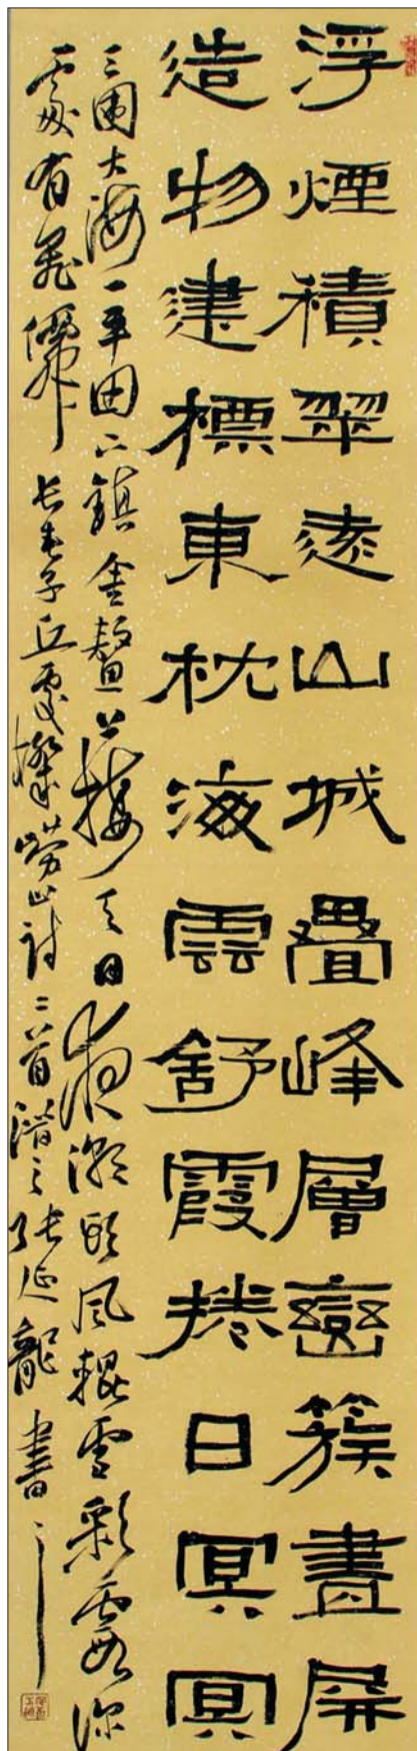 浮煙積翠遶山城疊峰層巒簇畫屏
造物建標東枕海雲舒霞捲日冥冥
三圍大海一平田下鎮金鼇上接天日夜潮頭風輥雪彩霞深
處有飛僊 長春子丘處機嶗山詩二首 潛之張延龍書